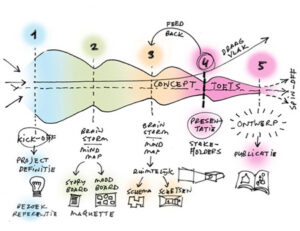 1
2
3
4
5
FEED
BACK
DRAAG
VLAK
CONCEPT
TOETS
SPIN-OFF
KICK-OFF
PROJECT
DEFINITIE
BEZOEK
REFERENTIE
BRAIN
STORM
MIND
MAP
STORY
BOARD
MOOD
BOARD
MAQUETTE
BRAIN
STORM
MIND
MAP
RUIMTELIJK
SCHEMA
SCHETSEN
PRESEN-
TATIE
STAKE-
HOLDERS
ONTWERP
PUBLICATIE